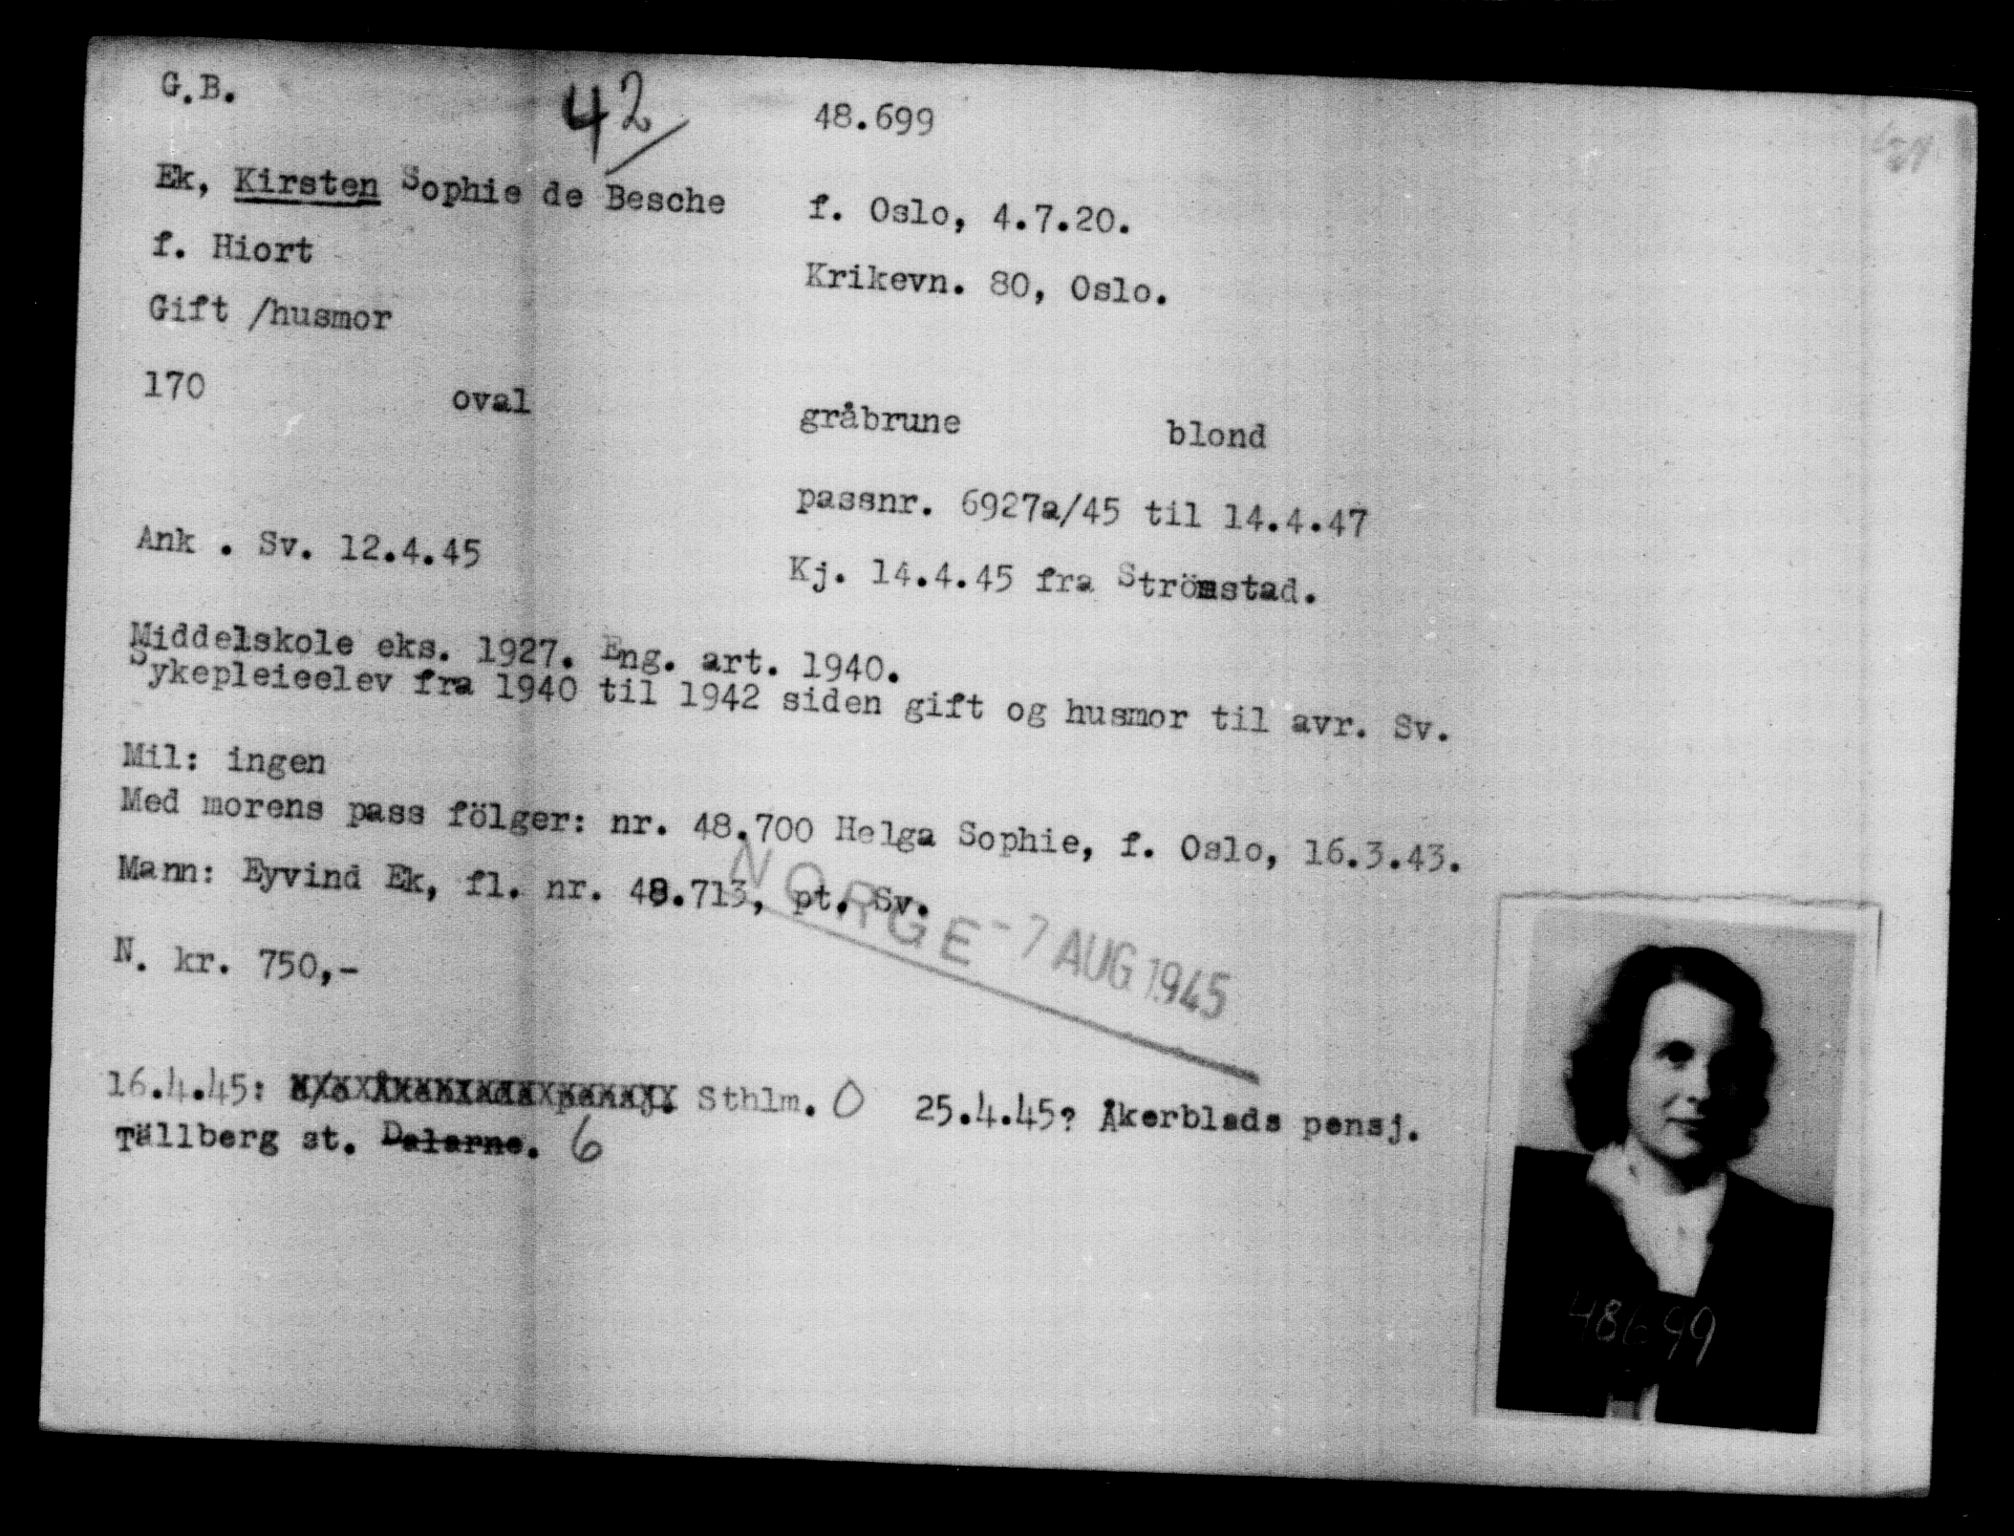 G.B.
42
48.699
Ek, Kirsten Sophie de Besche
f. Oslo, 4.7.20.
f. Hiort
Krikevn. 80, Oslo.
Gift /husmor
170 oval gråbrune blond
passnr. 6927a/45 til 14.4.47
Ank . Sv. 12.4.45
Kj. 14.4.45 fra Strömstad.
Middelskole eks. 1927. Eng. art. 1940.
Sykepleieelev fra 1940 til 1942 siden gift og husmor til avr. Sv.
Mil: ingen
Med morens pass fölger: nr. 48.700 Helga Sophie, f. Oslo, 16.3.43.
Mann: Eyvind Ek, fl. nr. 48.713, pt. Sv.
NORGE - 7 AUG 1945
N. kr. 750,-
16.4.45: Sthlm. O 25.4.45? Åkerblads pensj.
Tällberg st. Dalarne. 6
48699